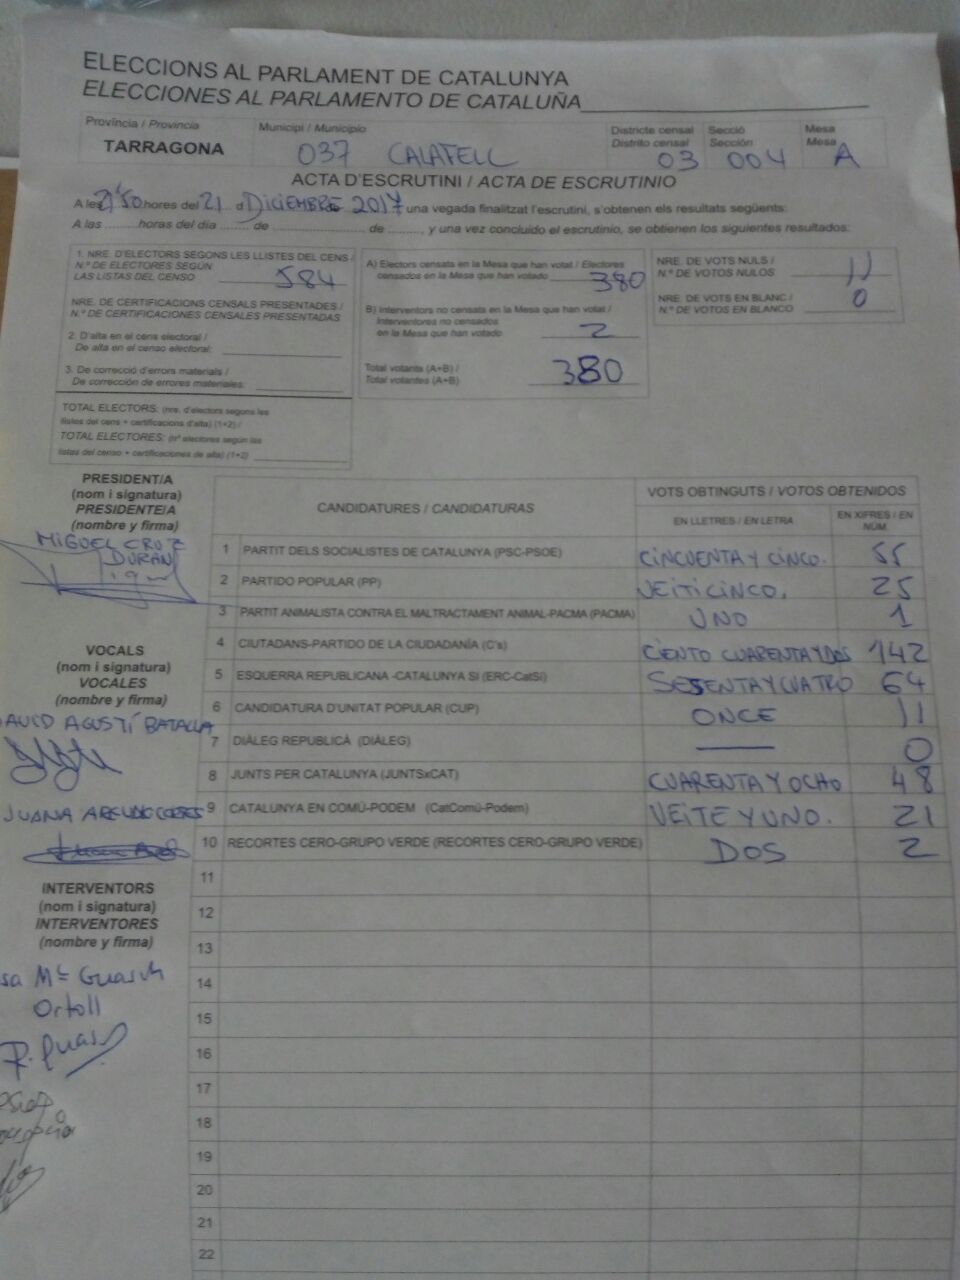 ELECCIONS AL PARLAMENT DE CATALUNYA
ELECCIONES AL PARLAMENTO DE CATALUÑA
Província / Provincia
TARRAGONA
Municipi / Municipio
037 CALAFELL
Districte censal
Distrito censal
03
Secció
Sección
004
Mesa
Mesa
A
ACTA D'ESCRUTINI / ACTA DE ESCRUTINIO
A les 21'50 hores del 21 d DICIEMBRE 2017 una vegada finalitzat l'escrutini, s'obtenen els resultats següents:
A las ........ horas del día ........ de ........ de ........, y una vez concluido el escrutinio, se obtienen los siguientes resultados:
1. NRE. D'ELECTORS SEGONS LES LLISTES DEL CENS /
N.º DE ELECTORES SEGÚN
LAS LISTAS DEL CENSO 584
NRE. DE CERTIFICACIONS CENSALS PRESENTADES /
N.º DE CERTIFICACIONES CENSALES PRESENTADAS
2. D'alta en el cens electoral /
De alta en el censo electoral:
3. De correcció d'errors materials /
De corrección de errores materiales:
TOTAL ELECTORS: (nre. d'electors segons les
llistes del cens + certificacions d'alta) (1+2) /
TOTAL ELECTORES: (nº electores según las
listas del censo + certificaciones de alta) (1+2)
A) Electors censats en la Mesa que han votat / Electores
censados en la Mesa que han votado 380
B) Interventors no censats en la Mesa que han votat /
Interventores no censados
en la Mesa que han votado 2
Total votants (A+B) /
Total votantes (A+B) 380
NRE. DE VOTS NULS /
N.º DE VOTOS NULOS 11
NRE. DE VOTS EN BLANC /
N.º DE VOTOS EN BLANCO 0
PRESIDENT/A
(nom i signatura)
PRESIDENTE/A
(nombre y firma)
MIGUEL CRUZ
DURAN
VOCALS
(nom i signatura)
VOCALES
(nombre y firma)
DAVID AGUSTÍ BATALLA
JUANA
INTERVENTORS
(nom i signatura)
INTERVENTORES
(nombre y firma)
Mª Guasch
Ortoll
CANDIDATURES / CANDIDATURAS
VOTS OBTINGUTS / VOTOS OBTENIDOS
EN LLETRES / EN LETRA
EN XIFRES / EN NÚM.
1 PARTIT DELS SOCIALISTES DE CATALUNYA (PSC-PSOE) CINCUENTA Y CINCO. 55
2 PARTIDO POPULAR (PP) VEITICINCO. 25
3 PARTIT ANIMALISTA CONTRA EL MALTRACTAMENT ANIMAL-PACMA (PACMA) UNO 1
4 CIUTADANS-PARTIDO DE LA CIUDADANÍA (C's) CIENTO CUARENTAYDOS 142
5 ESQUERRA REPUBLICANA -CATALUNYA SÍ (ERC-CatSí) SESENTAYCUATRO 64
6 CANDIDATURA D'UNITAT POPULAR (CUP) ONCE 11
7 DIÀLEG REPUBLICÀ (DIÀLEG) — 0
8 JUNTS PER CATALUNYA (JUNTSxCAT) CUARENTA Y OCHO 48
9 CATALUNYA EN COMÚ-PODEM (CatComú-Podem) VEITE Y UNO. 21
10 RECORTES CERO-GRUPO VERDE (RECORTES CERO-GRUPO VERDE) DOS 2
11
12
13
14
15
16
17
18
19
20
21
22